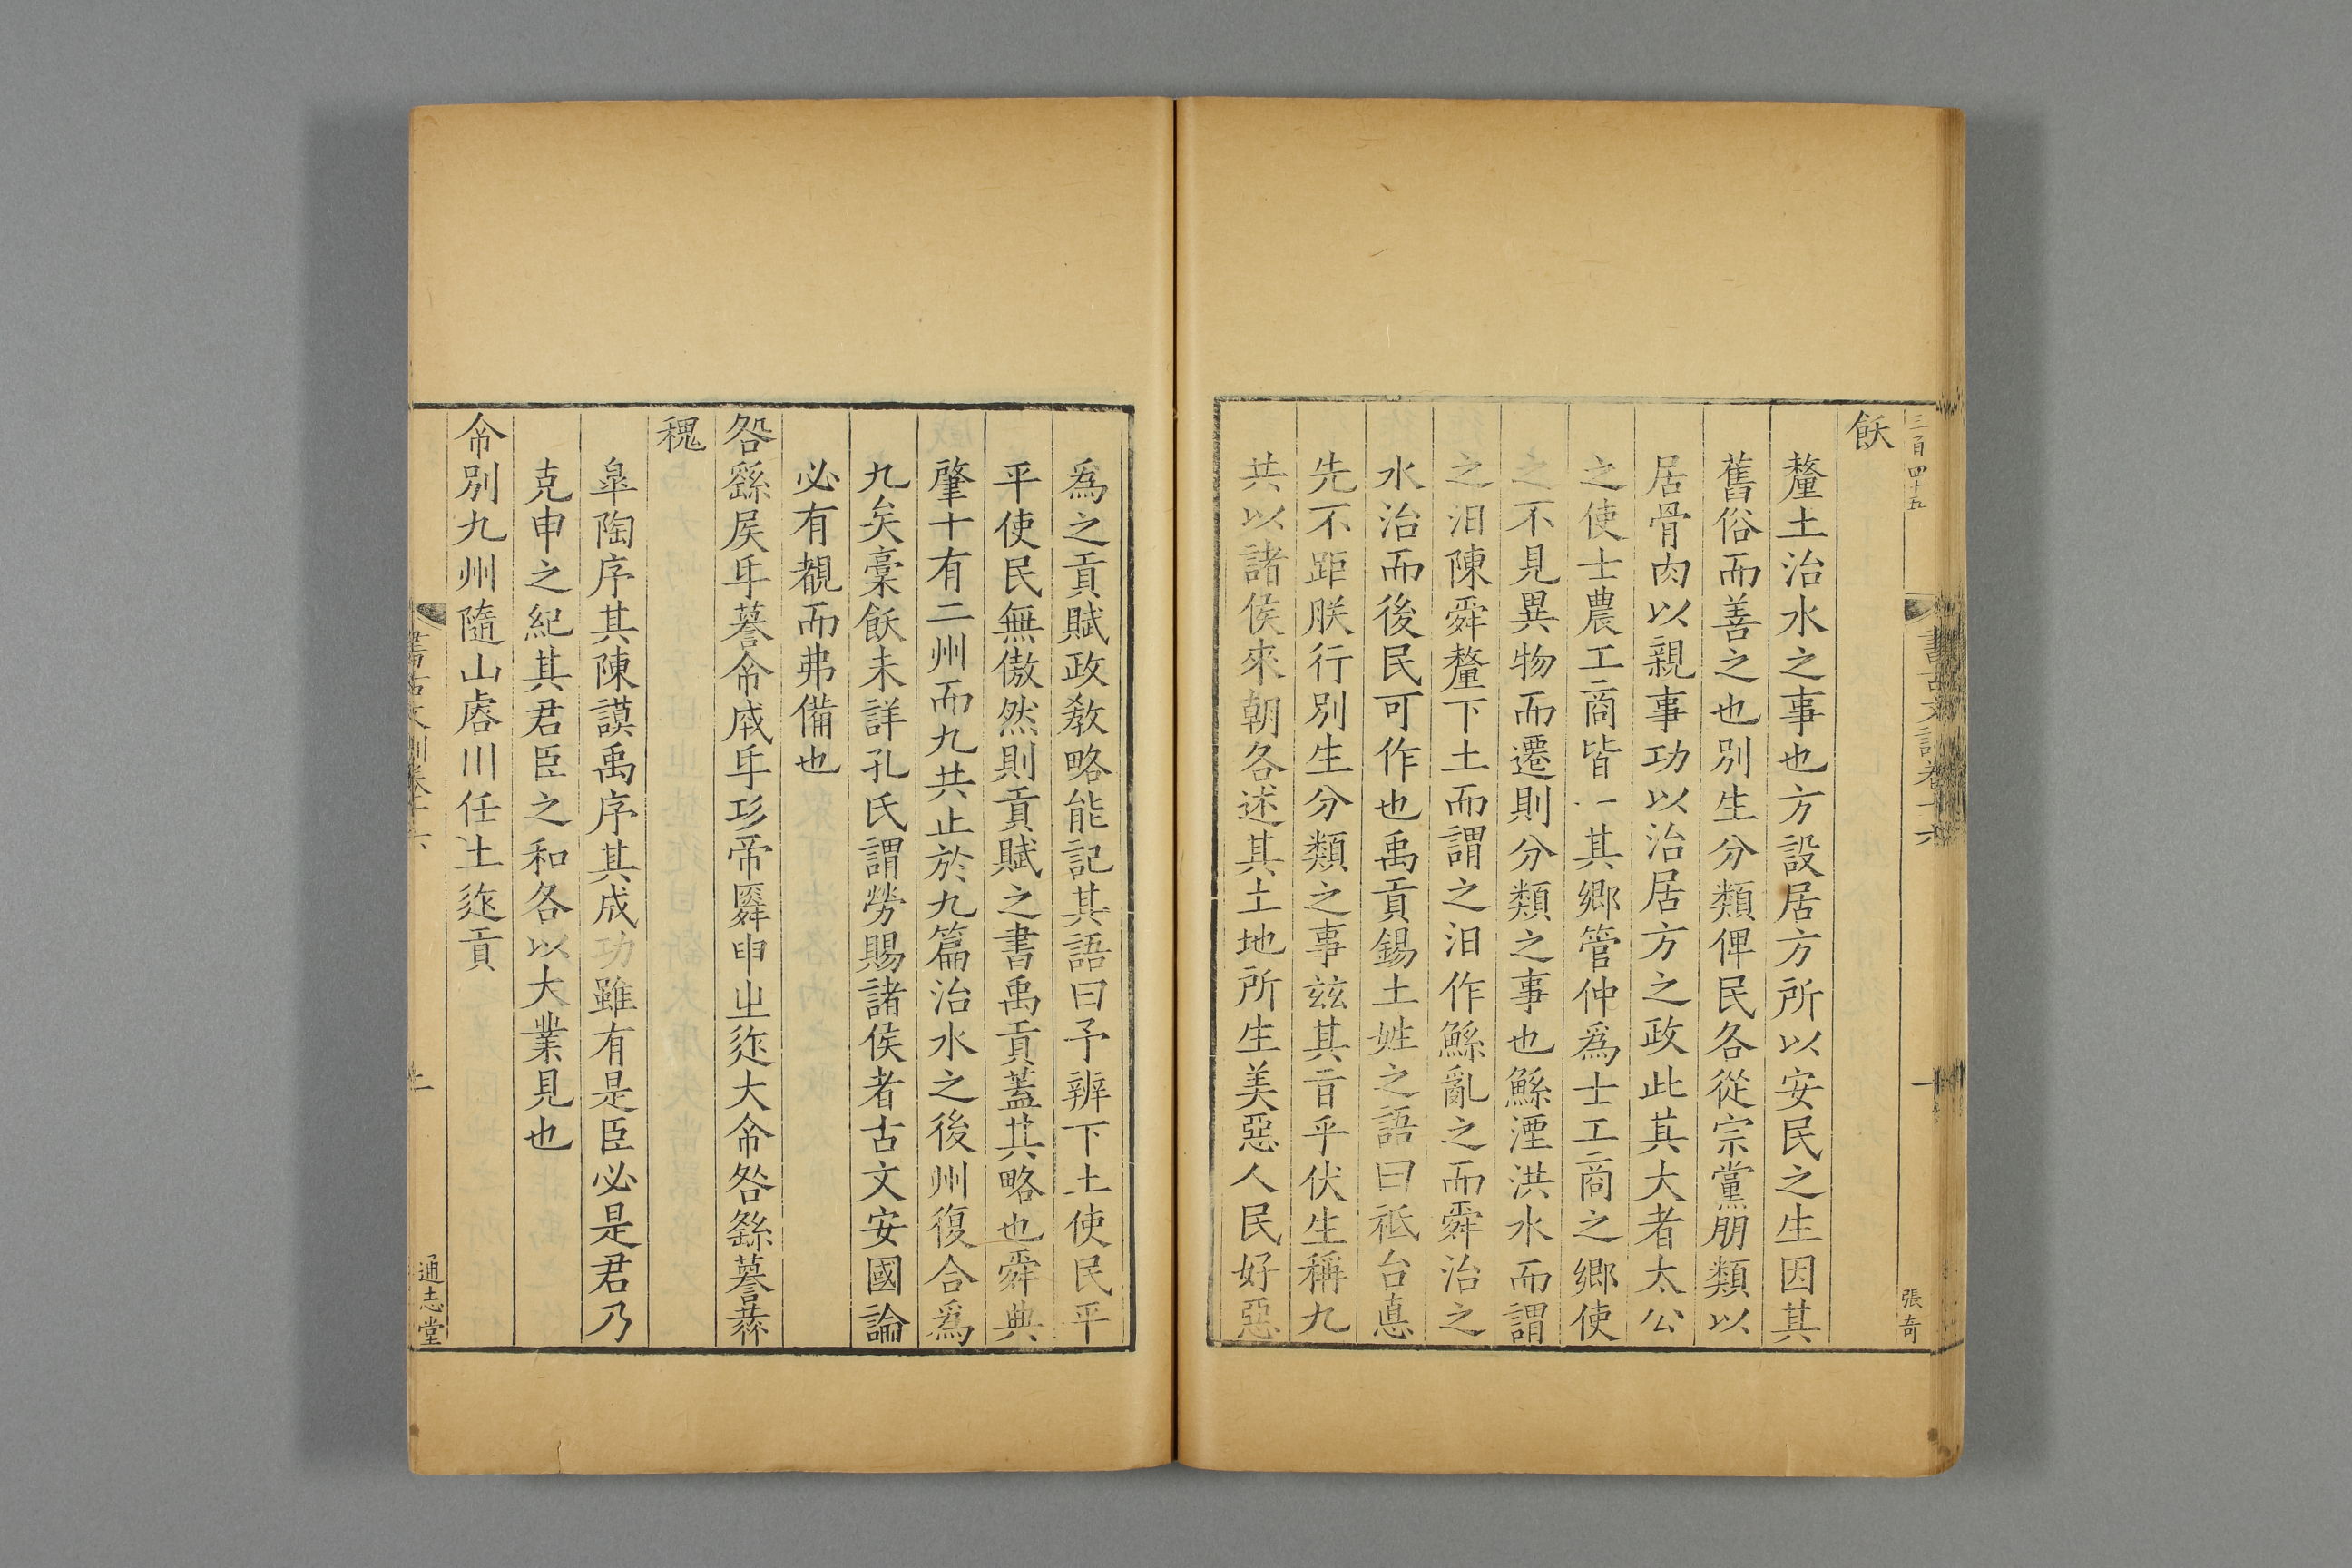 三百四十五
飫
釐土治水之事也方設居方所以安民之生因其
舊俗而善之也別生分類俾民各從宗黨朋類以
居骨肉以親事功以治居方之政此其大者太公
之使士農工商皆一其鄉管仲爲士工商之鄉使
之不見異物而遷則分類之事也鯀湮洪水而謂
之汩陳舜釐下土而謂之汩作鯀亂之而舜治之
水治而後民可作也禹貢錫土姓之語曰祗台悳
先不距朕行別生分類之事兹其音乎伏生稱九
共以諸侯來朝各述其土地所生美惡人民好惡
書古文訓卷十六
十
張奇
爲之貢賦政敎略能記其語曰予辨下土使民平
平使民無傲然則貢賦之書禹貢蓋其略也舜典
肇十有二州而九共止於九篇治水之後州復合爲
九矣稾飫未詳孔氏謂勞賜諸侯者古文安國論
必有覩而弗備也
咎繇𥎦𠂹謩命𢦩𠂹㓛帝䑞申㞢𨒪大命咎繇謩𢍱
稷
皐陶序其陳謨禹序其成功雖有是臣必是君乃
克申之紀其君臣之和各以大業見也
命別九州隨山㕡川任土𨒪貢
書古文訓卷十六
通志堂